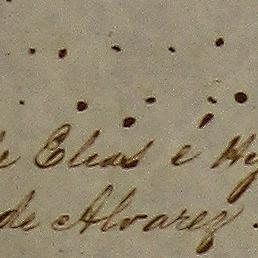 Elias e
de Alvarez.